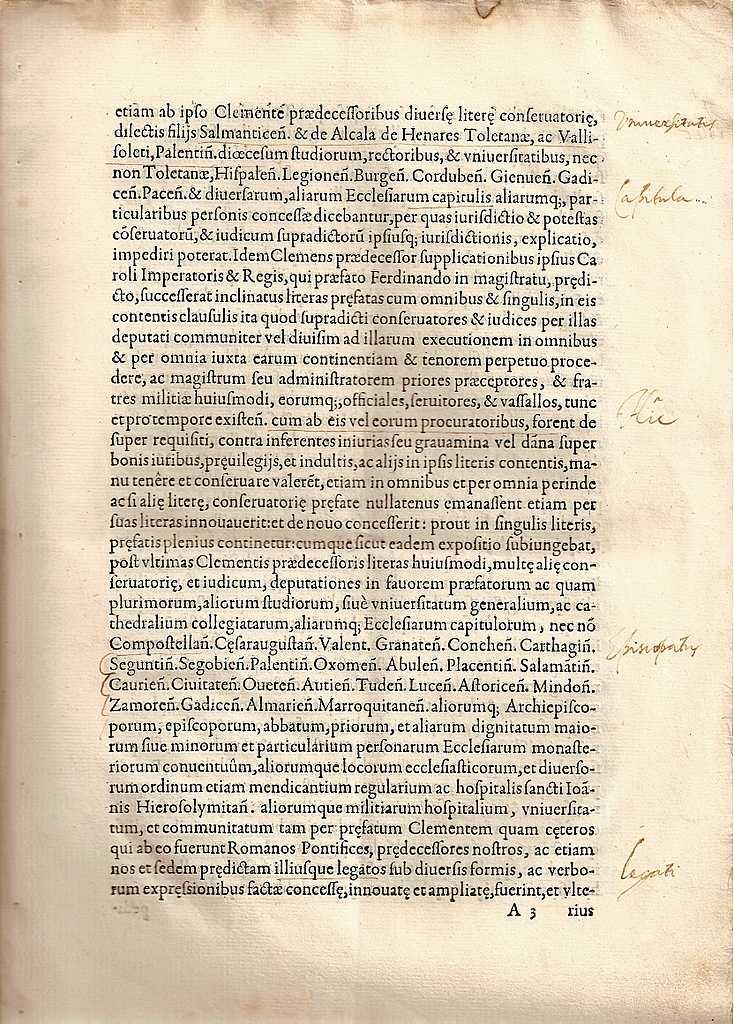 etiam ab ipso Clemẽtẽ prædecessoribus diuersę literę conseruatorię,
dilectis filijs Salmanticeñ. & de Alcala de Henares Toletanæ, ac Valli-
soleti, Palentiñ. diœcesum studiorum, rectoribus, & vniuersitatibus, nec
non Toletanæ, Hispaleñ. Legioneñ. Burgeñ. Cordubeñ. Gienueñ. Gadi-
ceñ. Paceñ. & diuersarum, aliarum Ecclesiarum capitulis aliarumq;, par-
ticularibus personis concessæ dicebantur, per quas iurisdictio & potestas
cõseruatorũ, & iudicum supradictorũ ipsiusq; iurisdictionis, explicatio,
impediri poterat. Idem Clemens prædecessor supplicationibus ipsius Ca
roli Imperatoris & Regis, qui præfato Ferdinando in magistratu, prędi-
cto, successerat inclinatus literas pręfatas cum omnibus & singulis, in eis
contentis clausulis ita quod supradicti conseruatores & iudices per illas
deputati communiter vel diuisim ad illarum executionem in omnibus
& per omnia iuxta earum continentiam & tenorem perpetuo proce-
dere, ac magistrum seu administratorem priores præceptores, & fra-
tres militiæ huiusmodi, eorumq;, officiales, seruitores, & vassallos, tunc
et pro tempore existeñ. cum ab eis vel eorum procuratoribus, forent de
super requisiti, contra inferentes iniurias seu grauamina vel dãna super
bonis iuribus, pręuilegijs, et indultis, ac alijs in ipsis literis contentis, ma-
nu tenêre et conseruare valerẽt, etiam in omnibus et per omnia perinde
ac si alię literę, conseruatorię pręfate nullatenus emanassent etiam per
suas literas innouauerit: et de nouo concesserit: prout in singulis literis,
pręfatis plenius continetur: cumque sicut eadem expositio subiungebat,
post vltimas Clementis prædecessoris literas huiusmodi, multę alię con-
seruatorię, et iudicum, deputationes in fauorem præfatorum ac quam
plurimorum, aliorum studiorum, siuè vniuersitatum generalium, ac ca-
thedralium collegiatarum, aliarumq; Ecclesiarum capitulorum, nec nõ
Compostellañ. Cęsaraugustañ. Valent. Granateñ. Concheñ. Carthagiñ.
Seguntiñ. Segobieñ. Palentiñ. Oxomeñ. Abuleñ. Placentiñ. Salamãtiñ.
Caurieñ. Ciuitateñ. Oueteñ. Autieñ. Tudeñ. Luceñ. Astoriceñ. Mindoñ.
Zamoreñ. Gadiceñ. Almarieñ. Marroquitaneñ. aliorumq; Archiepisco-
porum, episcoporum, abbatum, priorum, et aliarum dignitatum maio-
rum siue minorum et particularium personarum Ecclesiarum monaste-
riorum conuentuûm, aliorumque locorum ecclesiasticorum, et diuerso-
rum ordinum etiam mendicantium regularium ac hospitalis sancti Ioã-
nis Hierosolymitañ. aliorumque militiarum hospitalium, vniuersita-
tum, et communitatum tam per pręfatum Clementem quam cęteros
qui ab eo fuerunt Romanos Pontifices, prędecessores nostros, ac etiam
nos et sedem prędictam illiusque legatos sub diuersis formis, ac verbo-
rum expressionibus factæ concessę, innouatę et ampliatę, fuerint, et vlte-
A 3 rius
Vniuersitatis
Capitula
Episcopatus
legati